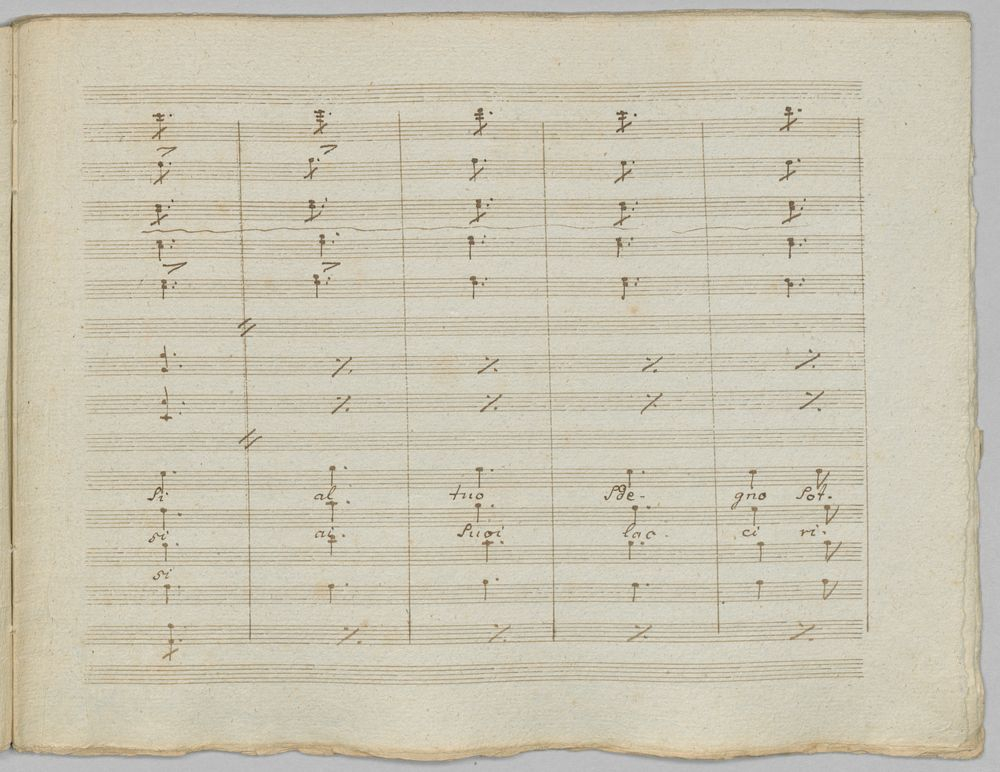 Si al tuo Sde- gno Sot-
si ai Suoi lac- ci ri-
si